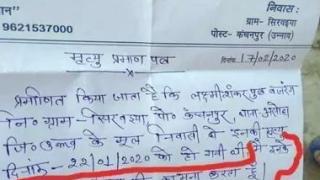 ान"
9621537000
निवास:
ग्राम- सिरवइया
पोस्ट- कंचनपुर (उन्नाव)
मृत्यु प्रमाण पत्र
दिनांक 17/02/2020
प्रमाणित किया जाता है कि लक्ष्मीशंकर पुत्र बजरंग
नि० ग्राम- सिरवइया पो० कंचनपुर, थाना- असोहा
जि० उन्नाव के मूल निवासी थे इनकी मृत्यु
दिनांक- 22/01/2020 को हो गयी थी मैं इनके
करता हूँ